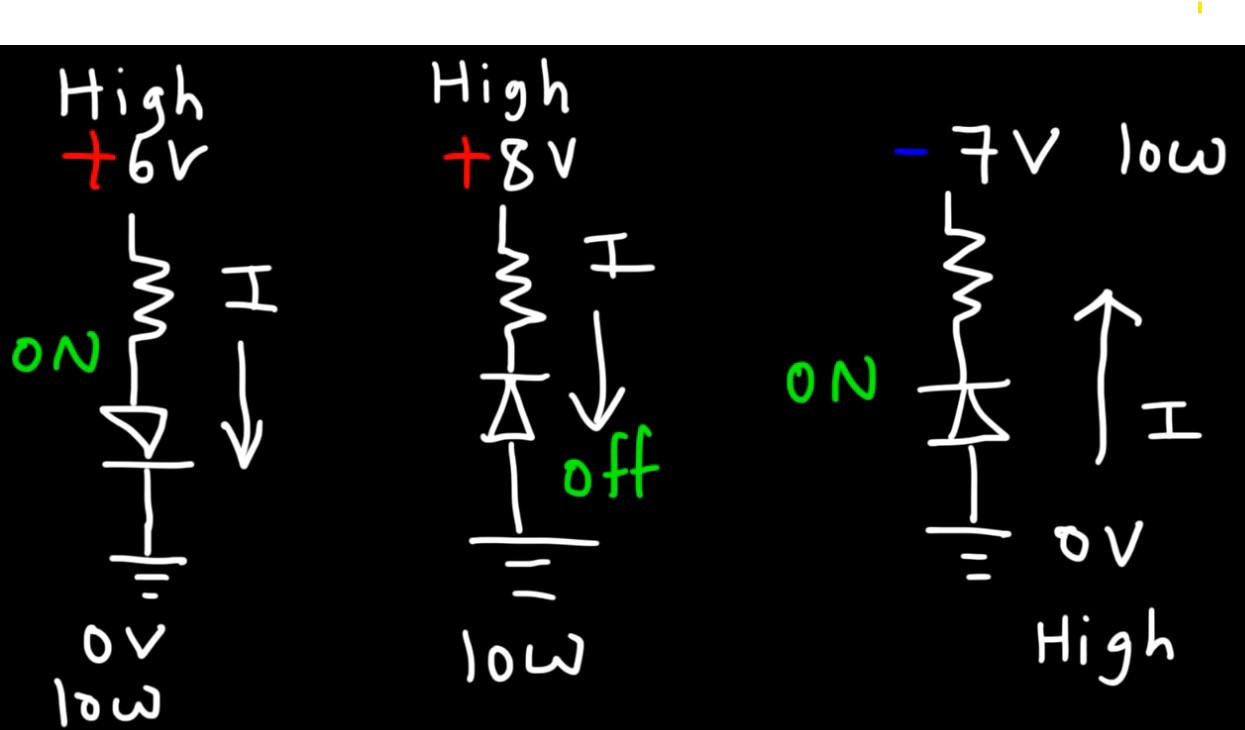 High
+6V
I
ON
0V
low
High
+8V
I
off
low
-7V low
ON
I
0V
High